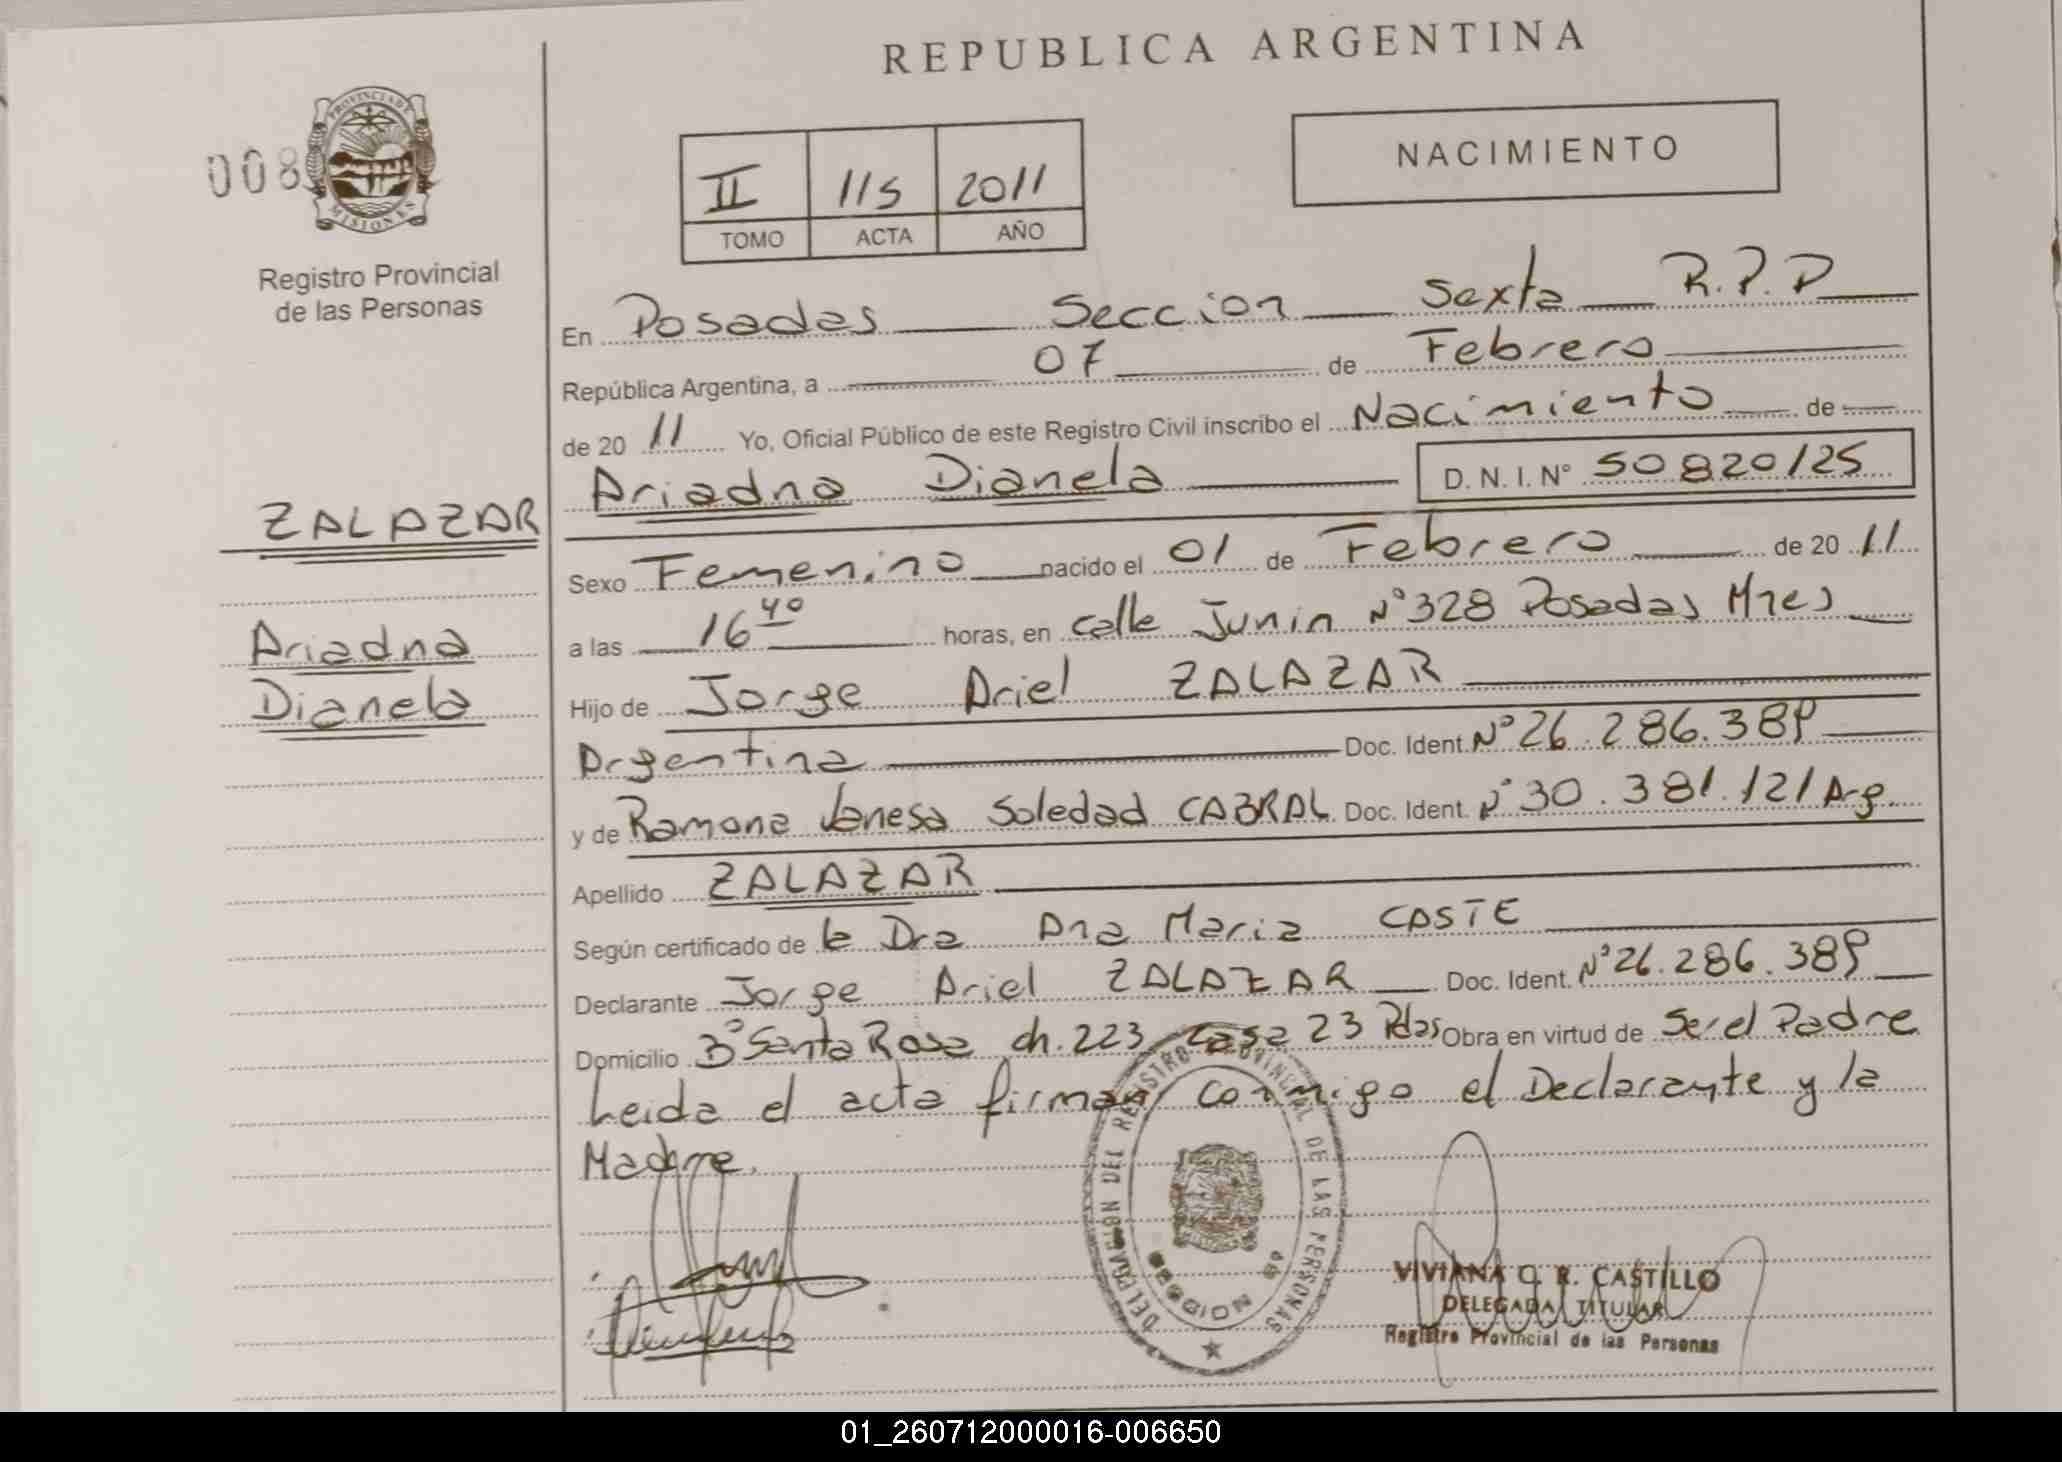 REPUBLICA ARGENTINA
008
PROVINCIA DE
MISIONES
Registro Provincial
de las Personas
II 115 2011
TOMO ACTA AÑO
NACIMIENTO
En Posadas Seccion Sexta R.P.P
República Argentina, a 07 de Febrero
de 20 11 Yo, Oficial Público de este Registro Civil inscribo el Nacimiento de
Ariadna Dianela D. N. I. Nº 50820125
ZALAZAR
Ariadna
Dianela
Sexo Femenino nacido el 01 de Febrero de 20 11
a las 16 40 horas, en calle Junin Nº 328 Posadas Mnes
Hijo de Jorge Ariel ZALAZAR
Argentina Doc. Ident. Nº 26.286.389
y de Ramona Vanesa Soledad CABRAL Doc. Ident. Nº 30.381.121 Arg.
Apellido ZALAZAR
Según certificado de la Dra Ana Maria CASTE
Declarante Jorge Ariel ZALAZAR Doc. Ident. Nº 26.286.389
Domicilio Bº Santa Rosa ch. 223 casa 23 Pdas Obra en virtud de Ser el Padre
Leida el acta firman conmigo el Declarante y la
Madre.
DELEGACIÓN DEL REGISTRO PROVINCIAL DE LAS PERSONAS
VIVIANA C. R. CASTILLO
DELEGADA TITULAR
Registro Provincial de las Personas
01_260712000016-006650